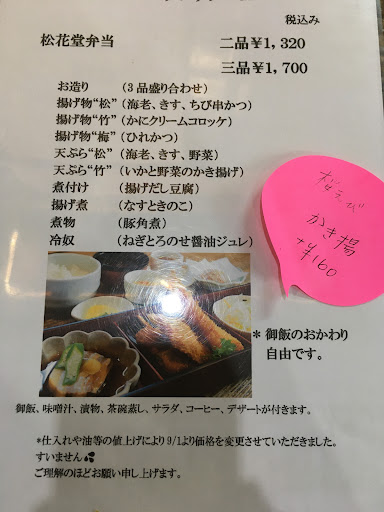 税込み
松花堂弁当 二品¥1,320
三品¥1,700
お造り （3品盛り合わせ）
揚げ物“松” （海老、きす、ちび串かつ）
揚げ物“竹” （かにクリームコロッケ）
揚げ物“梅” （ひれかつ）
天ぷら“松” （海老、きす、野菜）
天ぷら“竹” （いかと野菜のかき揚げ）
煮付け （揚げだし豆腐）
揚げ煮 （なすときのこ）
煮物 （豚角煮）
冷奴 （ねぎとろのせ醤油ジュレ）
桜えび
かき揚
+¥160
＊御飯のおかわり
自由です。
御飯、味噌汁、漬物、茶碗蒸し、サラダ、コーヒー、デザートが付きます。
*仕入れや油等の値上げにより9/1より価格を変更させていただきました。
すいません💦
ご理解のほどお願い申し上げます。